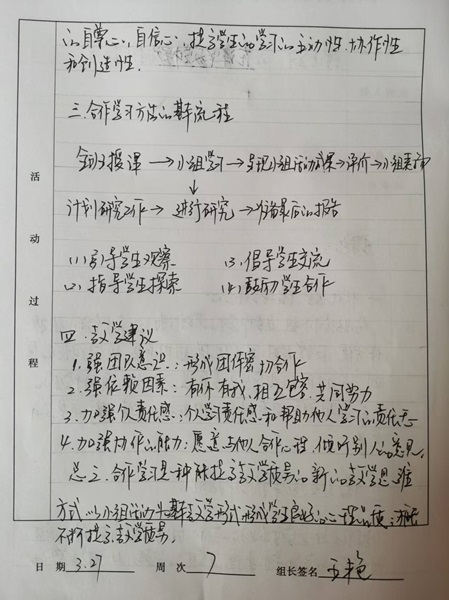 的自尊心、自信心,提高学生的学习的主动性、协作性
和创造性.
三.合作学习方法的基本流程
全班授课→小组学习→呈现小组活动成果→评价→小组表
↓
计划研究工作→进行研究→准备最后的报告
(1)引导学生观察 (3)倡导学生交流
(2)指导学生探索 (4)鼓励学生合作
四.教学建议
1.强团队意识:形成团体密切合作
2.强依赖因素:有你有我、相互包容、共同努力
3.加强个人责任感:个人学习责任感和帮助他人学习的责任感
4.加强协作的能力:愿意与他人合作 倾听别人的意见.
总之.合作学习是一种能提高教学质量的新的教学思维
方式.以小组活动为基本教学形式,形成学生良好的心理品质,
不断提高教学质量.
活动过程
日期 3.27 周次 7 组长签名 王艳